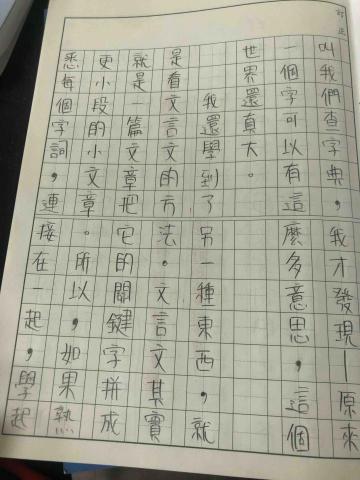 訂正
叫我們查字典，我才發現—原來
一個字可以有這麼多意思，這個
世界還真大。
我還學到了另一種東西，就
是看文言文的方法。文言文其實
就是一篇文章把它的關鍵字拼成
更小段的小文章。所以，如果熟
悉每個字詞，連接在一起，學起